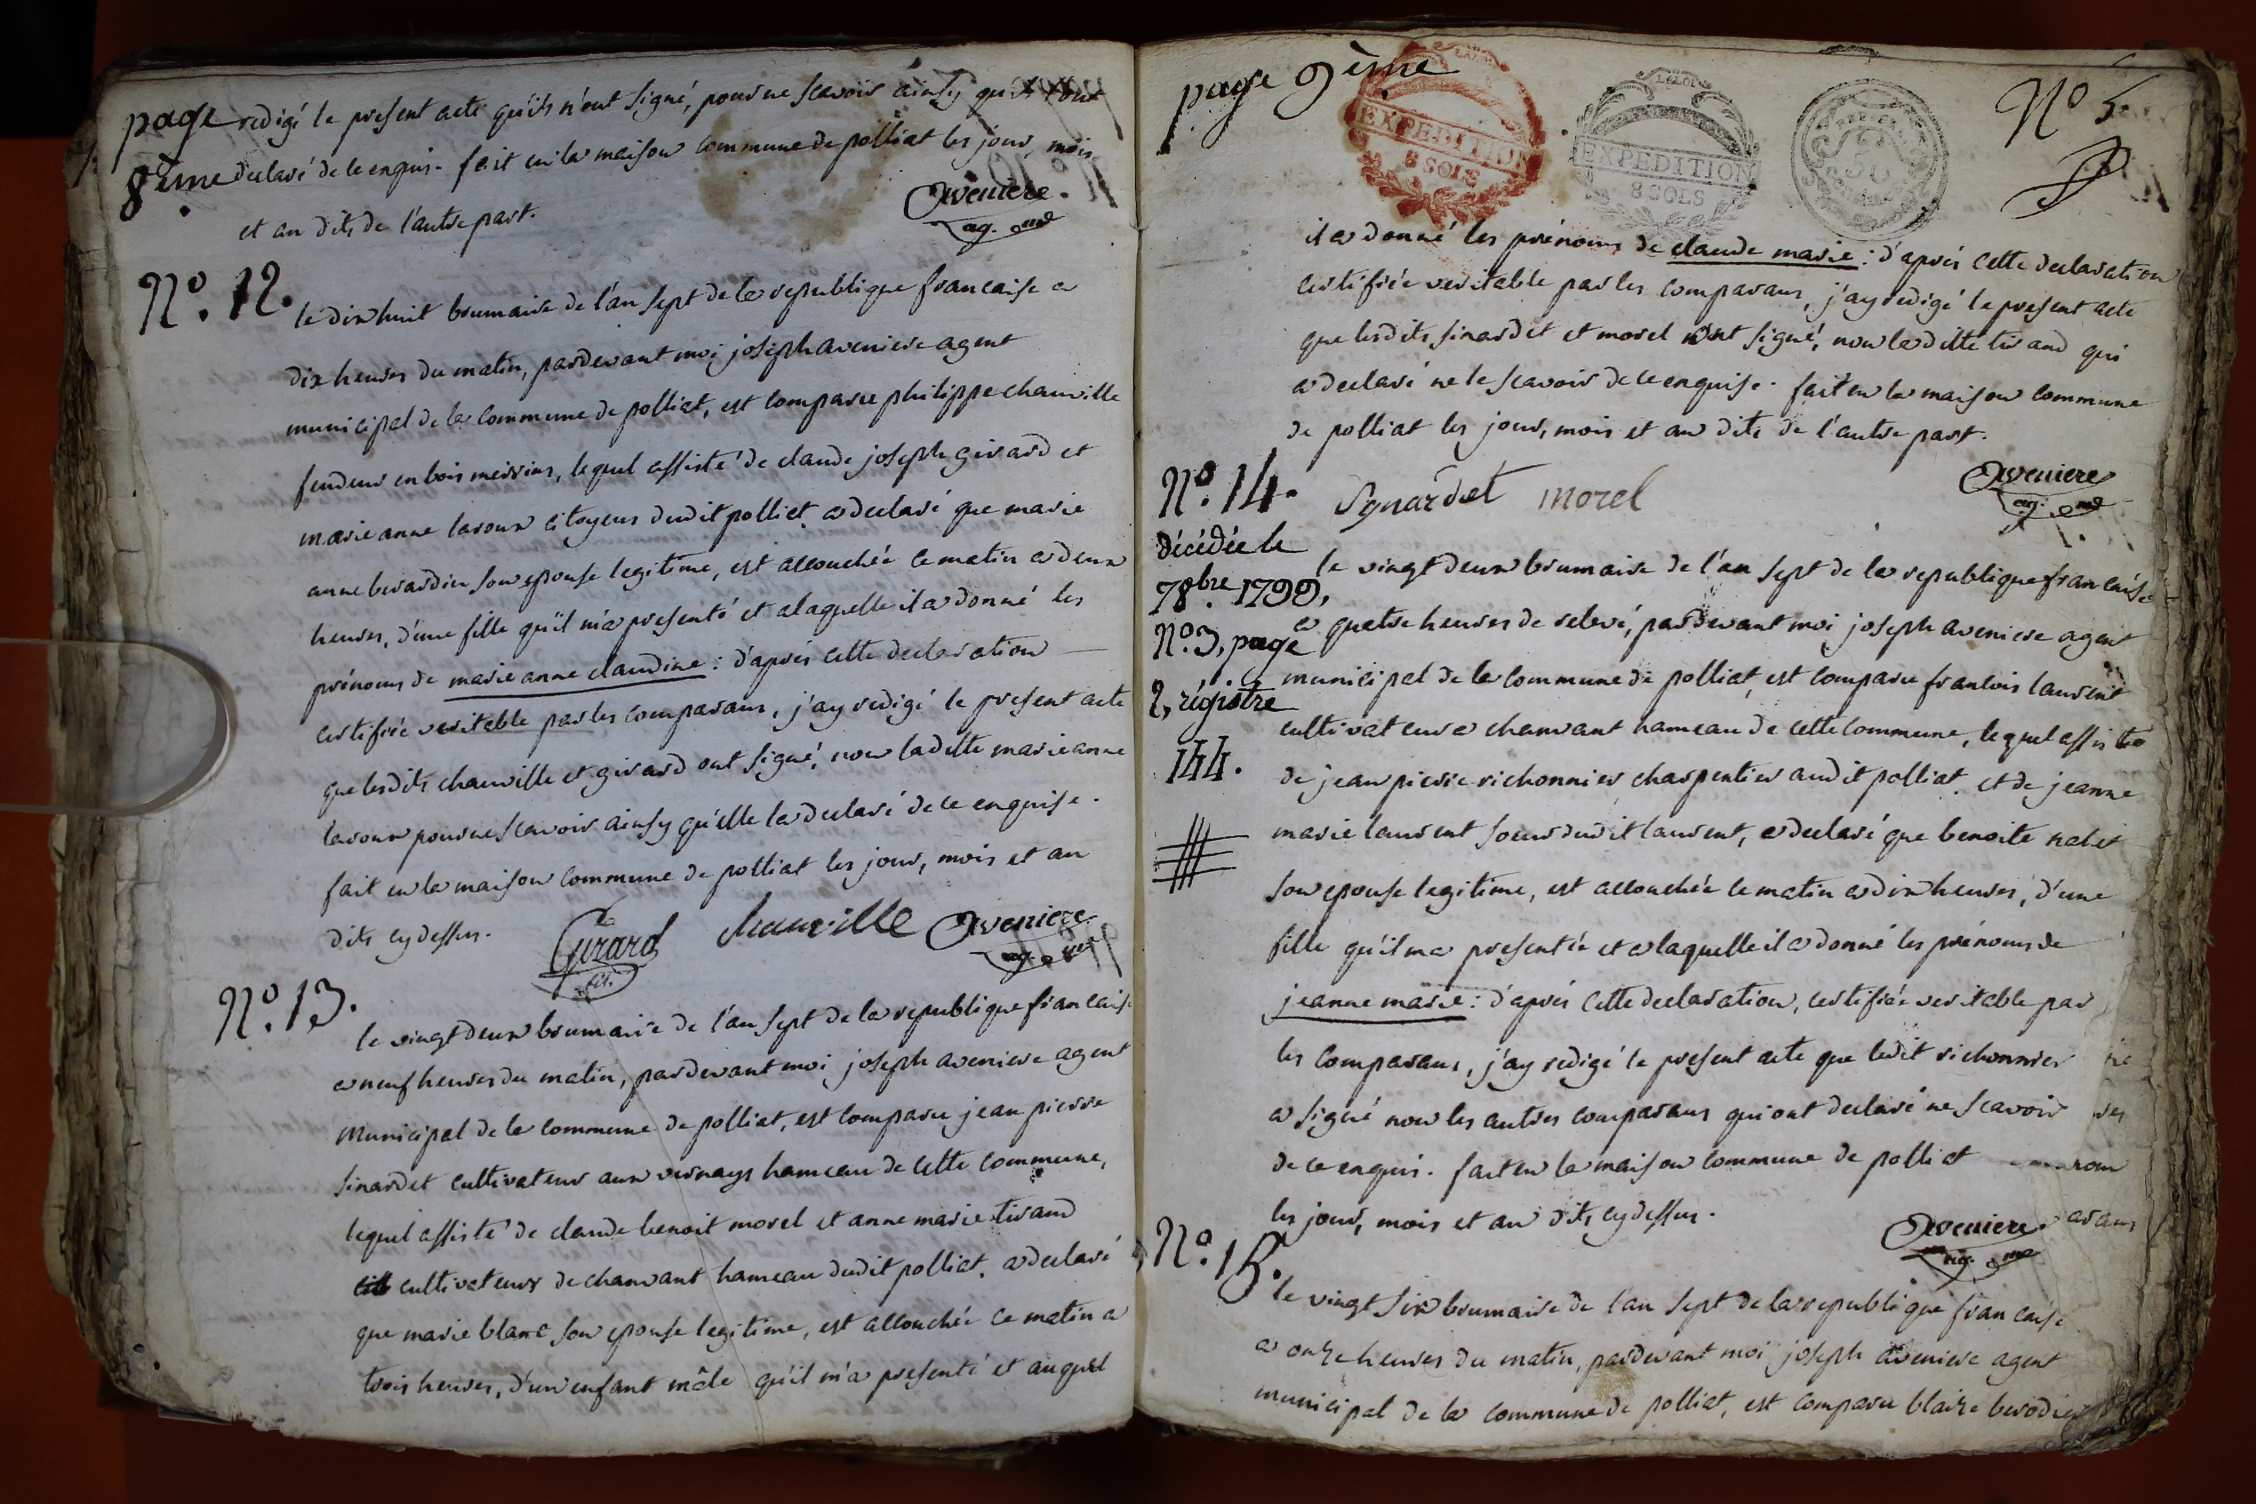 page redigé le present acte qu'ils n'ont signé, pour ne scavoir ainsy qu'ils l'ont
8ème declaré de ce enquis. fait en la maison commune de polliat les jour, mois
et an dits de l'autre part.
Aveniere
ag. mal
N°. 12.
le dix huit brumaire de l'an sept de la republique francaise a
dix heures du matin, pardevant moi joseph aveniere agent
municipal de la commune de polliat, est comparu philippe chauville
fendeur en bois merrins, lequel assisté de claude joseph girard et
marie anne laroux citoyens dudit polliat, a declaré que marie
anne berardier son epouse legitime, est accouchée ce matin a deux
heures, d'une fille qu'il m'a presenté et a laquelle il a donné les
prénoms de marie anne claudine : d'apres cette declaration
certifiée veritable par les comparans, j'ay redigé le present acte
que lesdits chauville et girard ont signé, non laditte marie anne
laroux pour ne scavoir ainsy qu'elle l'a declaré de ce enquise.
fait en la maison commune de polliat les jour, mois et an
dits cy dessus.
Girard
chauville
Aveniere
ag. mal
N°. 13.
le vingt deux brumaire de l'an sept de la republique francaise
a neuf heures du matin, pardevant moi joseph aveniere agent
municipal de la commune de polliat, est comparu jean pierre
sinardet cultivateur aux vernays hameau de cette commune,
lequel assisté de claude benoit morel et anne marie tirand
cultivateurs de chanvant hameau dudit polliat, a declaré
que marie blanc son epouse legitime, est accouchée ce matin a
trois heures, d'un enfant mâle qu'il m'a presenté et auquel
page 9ème
LA LOI
EXPEDITION
8 SOLS
LA LOI
EXPEDITION
8 SOLS
N° 5
il a donné les prénoms de claude marie : d'aprés cette declaration
certifiée veritable par les comparans, j'ay redigé le present acte
que lesdits sinardet et morel ont signé, non laditte tirand qui
a declaré ne le scavoir de ce enquise. fait en la maison commune
de polliat les jour, mois et an dits de l'autre part.
Synardet morel
Aveniere
ag. mal
N°. 14.
décédée le
78bre. 1799,
N°. 3, page
2, régistre
144.
le vingt deux brumaire de l'an sept de la republique francaise
a quatre heures de relevé, pardevant moi joseph aveniere agent
municipal de la commune de polliat, est comparu francois laurent
cultivateur a chanvant hameau de cette commune, lequel assisté
de jean pierre richonnier charpentier audit polliat, et de jeanne
marie laurent soeur dudit laurent, a declaré que benoite nalet
son epouse legitime, est accouchée ce matin a dix heures, d'une
fille qu'il m'a presentée et a laquelle il a donné les prénoms de
jeanne marie : d'aprés cette declaration, certifiée veritable par
les comparans, j'ay redigé le present acte que ledit richonnier
a signé non les autres comparans qui ont declaré ne scavoir
de ce enquis. fait en la maison commune de polliat
les jour, mois et an dits cy dessus.
Aveniere
ag. mal
N°. 15.
le vingt six brumaire de l'an sept de la republique francaise
a onze heures du matin, pardevant moi joseph aveniere agent
municipal de la commune de polliat, est comparu blaize berodier